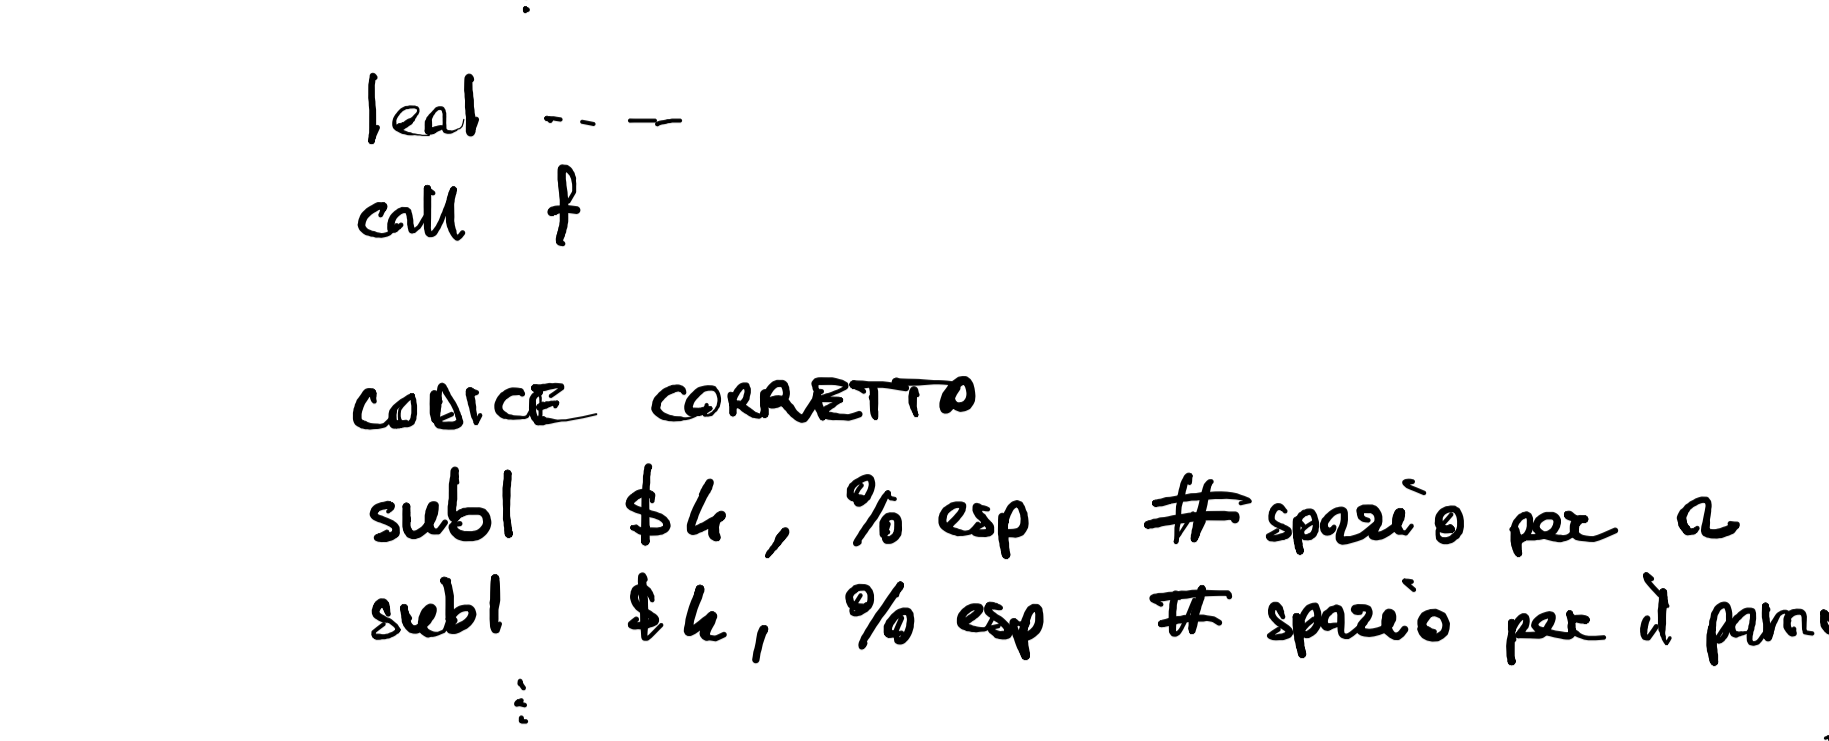 leal -- —
call f
CODICE CORRETTO
subl $4, %esp # spazio per a
subl $4, %esp # spazio per il param
⋮